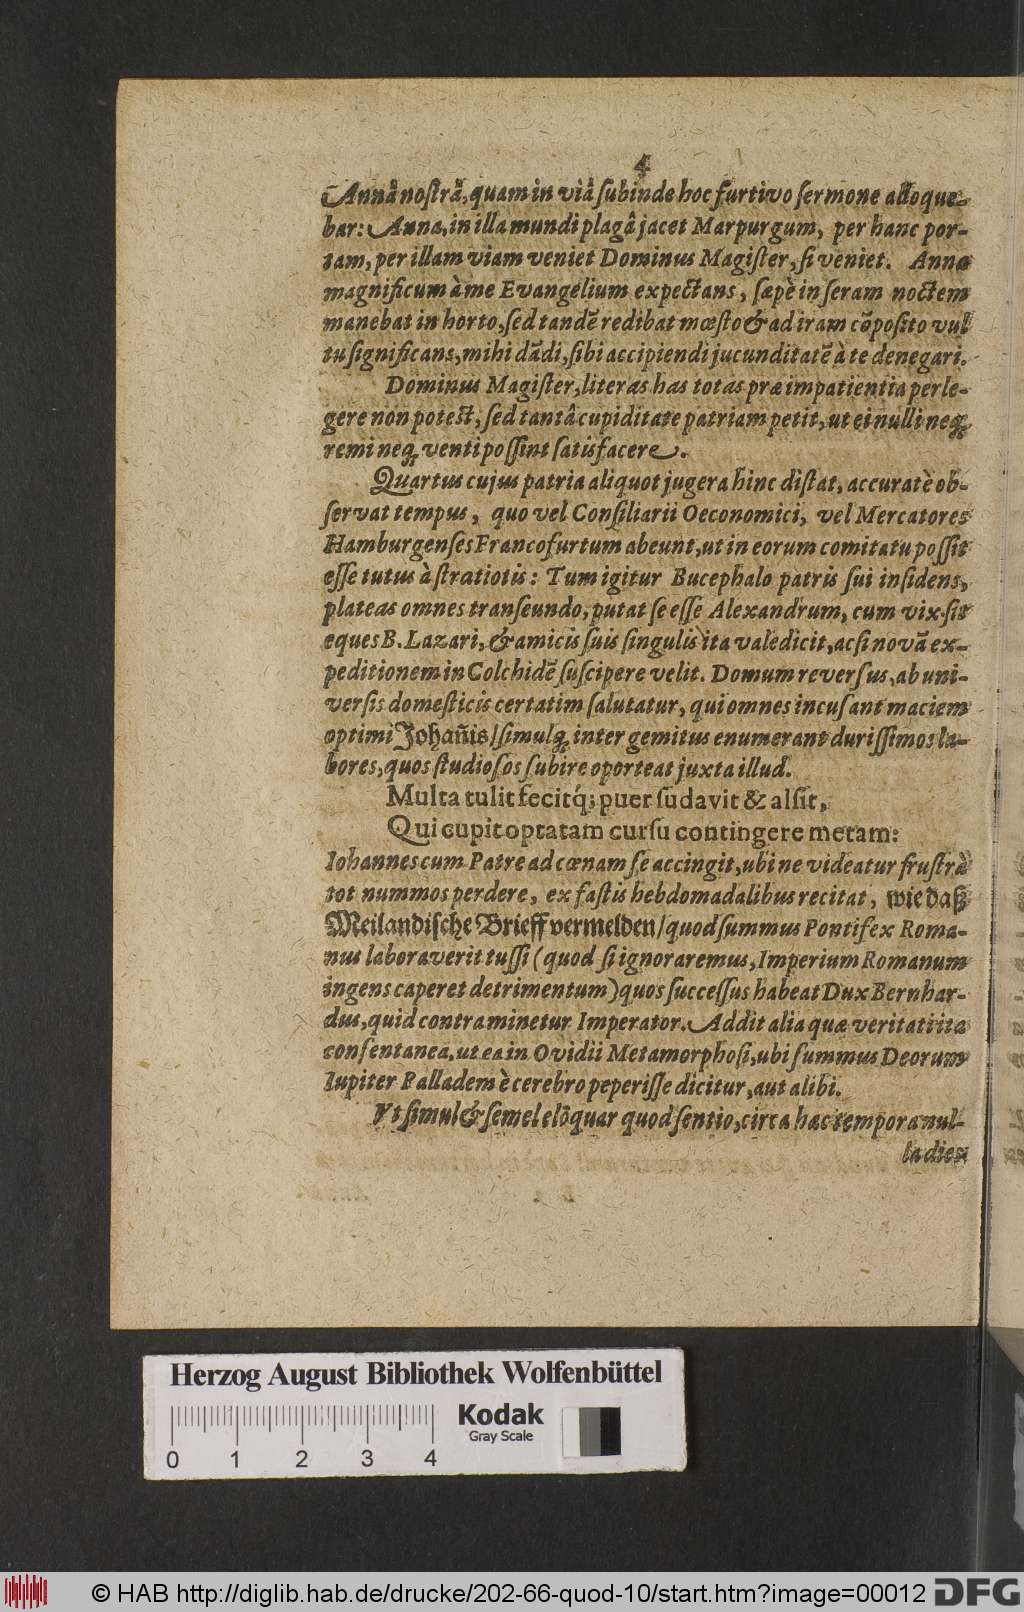 4
Annâ nostrâ, quam in viâ subinde hoc furtivo sermone alloque-
bar: Anna, in illa mundi plagâ jacet Marpurgum, per hanc por-
tam, per illam viam veniet Dominus Magister, si veniet. Anna
magnificum à me Evangelium expectans, sæpè in seram noctem
manebat in horto, sed tandẽ redibat mœsto & ad iram cõposito vul
tu significans, mihi dãdi, sibi accipiendi jucunditatẽ à te denegari.
Dominus Magister, literas has totas præ impatientia perle-
gere non potest, sed tantâ cupiditate patriam petit, ut ei nulli neq;
remi neq; venti possint satisfacere.
Quartus cujus patria aliquot jugera hinc distat, accuratè ob-
servat tempus, quo vel Consiliarii Oeconomici, vel Mercatores
Hamburgenses Francofurtum abeunt, ut in eorum comitatu possit
esse tutus à stratiotis: Tum igitur Bucephalo patris sui insidens,
plateas omnes transeundo, putat se esse Alexandrum, cum vix sit
eques B. Lazari, & amicis suis singulis ita valedicit, ac si novã ex-
peditionem in Colchidẽ suscipere velit. Domum reversus, ab uni-
versis domesticis certatim salutatur, qui omnes incusant maciem
optimi Johañis/ simulq; inter gemitus enumerant durissimos la-
bores, quos studiosos subire oporteat juxta illud.
Multa tulit fecitq́; puer sudavit & alsit,
Qui cupit optatam cursu contingere metam:
Iohannes cum Patre ad cœnam se accingit, ubi ne videatur frustrà
tot nummos perdere, ex fastis hebdomadalibus recitat, wie daß
Meilandische Brieff vermelden/ quod summus Pontifex Roma-
nus laboraverit tussi (quod si ignoraremus, Imperium Romanum
ingens caperet detrimentum) quos successus habeat Dux Bernhar-
dus, quid contra minetur Imperator. Addit alia quæ veritati ita
consentanea, ut ea in Ovidii Metamorphosi, ubi summus Deorum
Iupiter Palladem è cerebro peperisse dicitur, aut alibi.
Vt simul & semel elõquar quod sentio, circa hac tempora nul-
la dies
Herzog August Bibliothek Wolfenbüttel
Kodak
Gray Scale
0 1 2 3 4
© HAB http://diglib.hab.de/drucke/202-66-quod-10/start.htm?image=00012
DFG